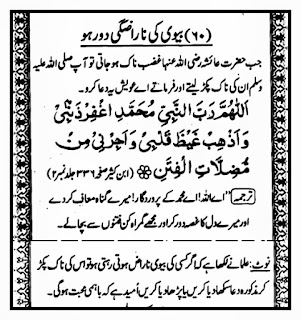 (۶۰) بیوی کی ناراضگی دور ہو
جب حضرت عائشہ رضی اللہ عنہا غضب ناک ہو جاتی تو آپ صلی اللہ علیہ
وسلم ان کی ناک پکڑ لیتے اور فرماتے اے عویش یہ دعا کرو۔
اَللّٰهُمَّ رَبَّ النَّبِيِّ مُحَمَّدٍ اِغْفِرْ ذَنْۢبِيْ
وَاَذْهِبْ غَيْظَ قَلْبِيْ وَاَجِرْنِيْ مِنْ
مُضِلَّاتِ الْفِتَنِ (ابن کثیر صفحہ ۳۳۶ جلد نمبر ۲)
ترجمہ "اے اللہ! اے محمد کے پروردگار! میرے گناہ معاف کر دے
اور میرے دل کا غصہ دور کر اور مجھے گمراہ کن فتنوں سے بچالے۔
نوٹ: علما نے لکھا ہے کہ اگر کسی کی بیوی ناراض ہوتی رہتی ہو تو اس کی ناک پکڑ
کر مذکورہ دعا سکھا دیا کریں یا پڑھا دیا کریں اُمید ہے کہ باہمی محبت ہوگی۔